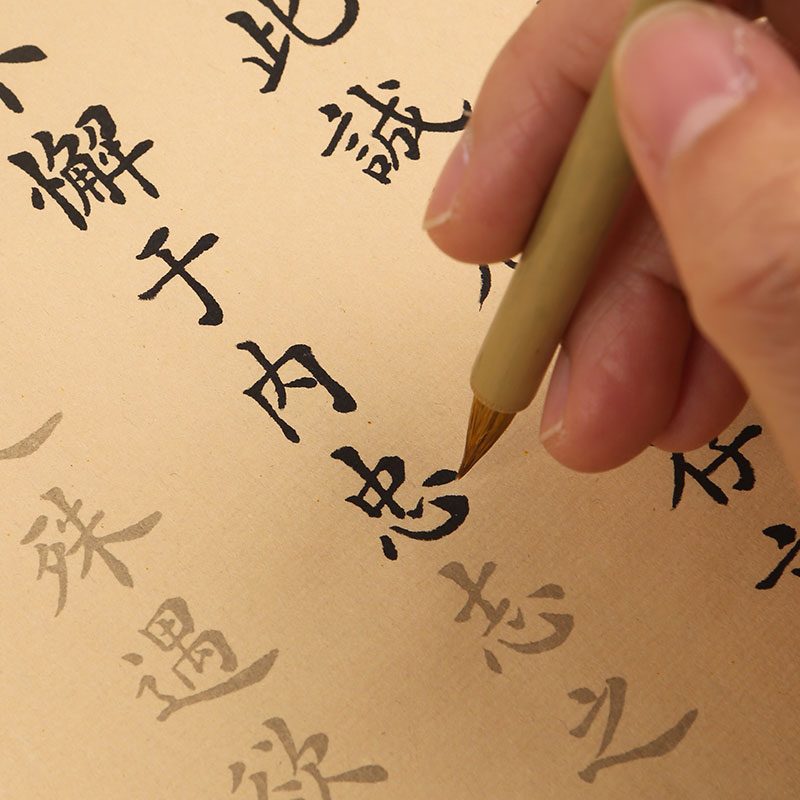 此誠存
懈于内忠志之
殊遇欲